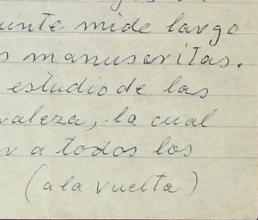 unte mide largo
s manuscritas.
estudio de las
valeza, la cual
r a todos los
(a la vuelta)